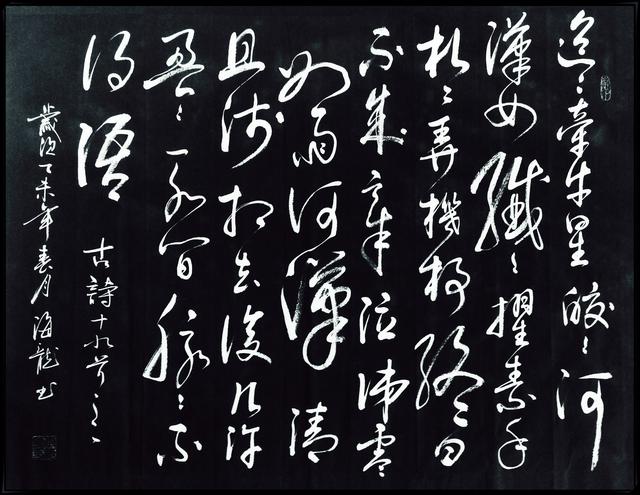 迢〻牽牛星皎〻河
漢女纖〻擢素手
札〻弄機杼終日
不成章泣涕零
如雨河漢清
且淺相去復幾許
盈〻一水間脈〻不
得語
古詩十九首之一
歲次乙未年春月海龍書